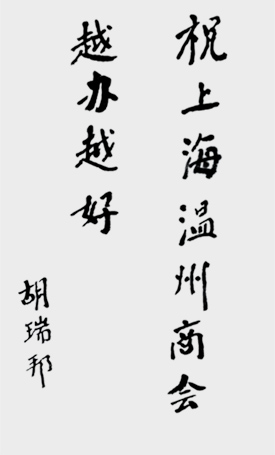 祝上海温州商会
越办越好
胡瑞邦